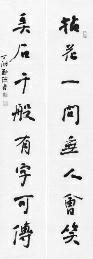 拈花一問無人會笑
奚石千般有字可傳